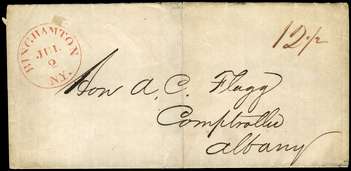 BINGHAMTON
JUL
2
N.Y.
12 1/2
Hon A. C. Flagg
Comptroller
Albany